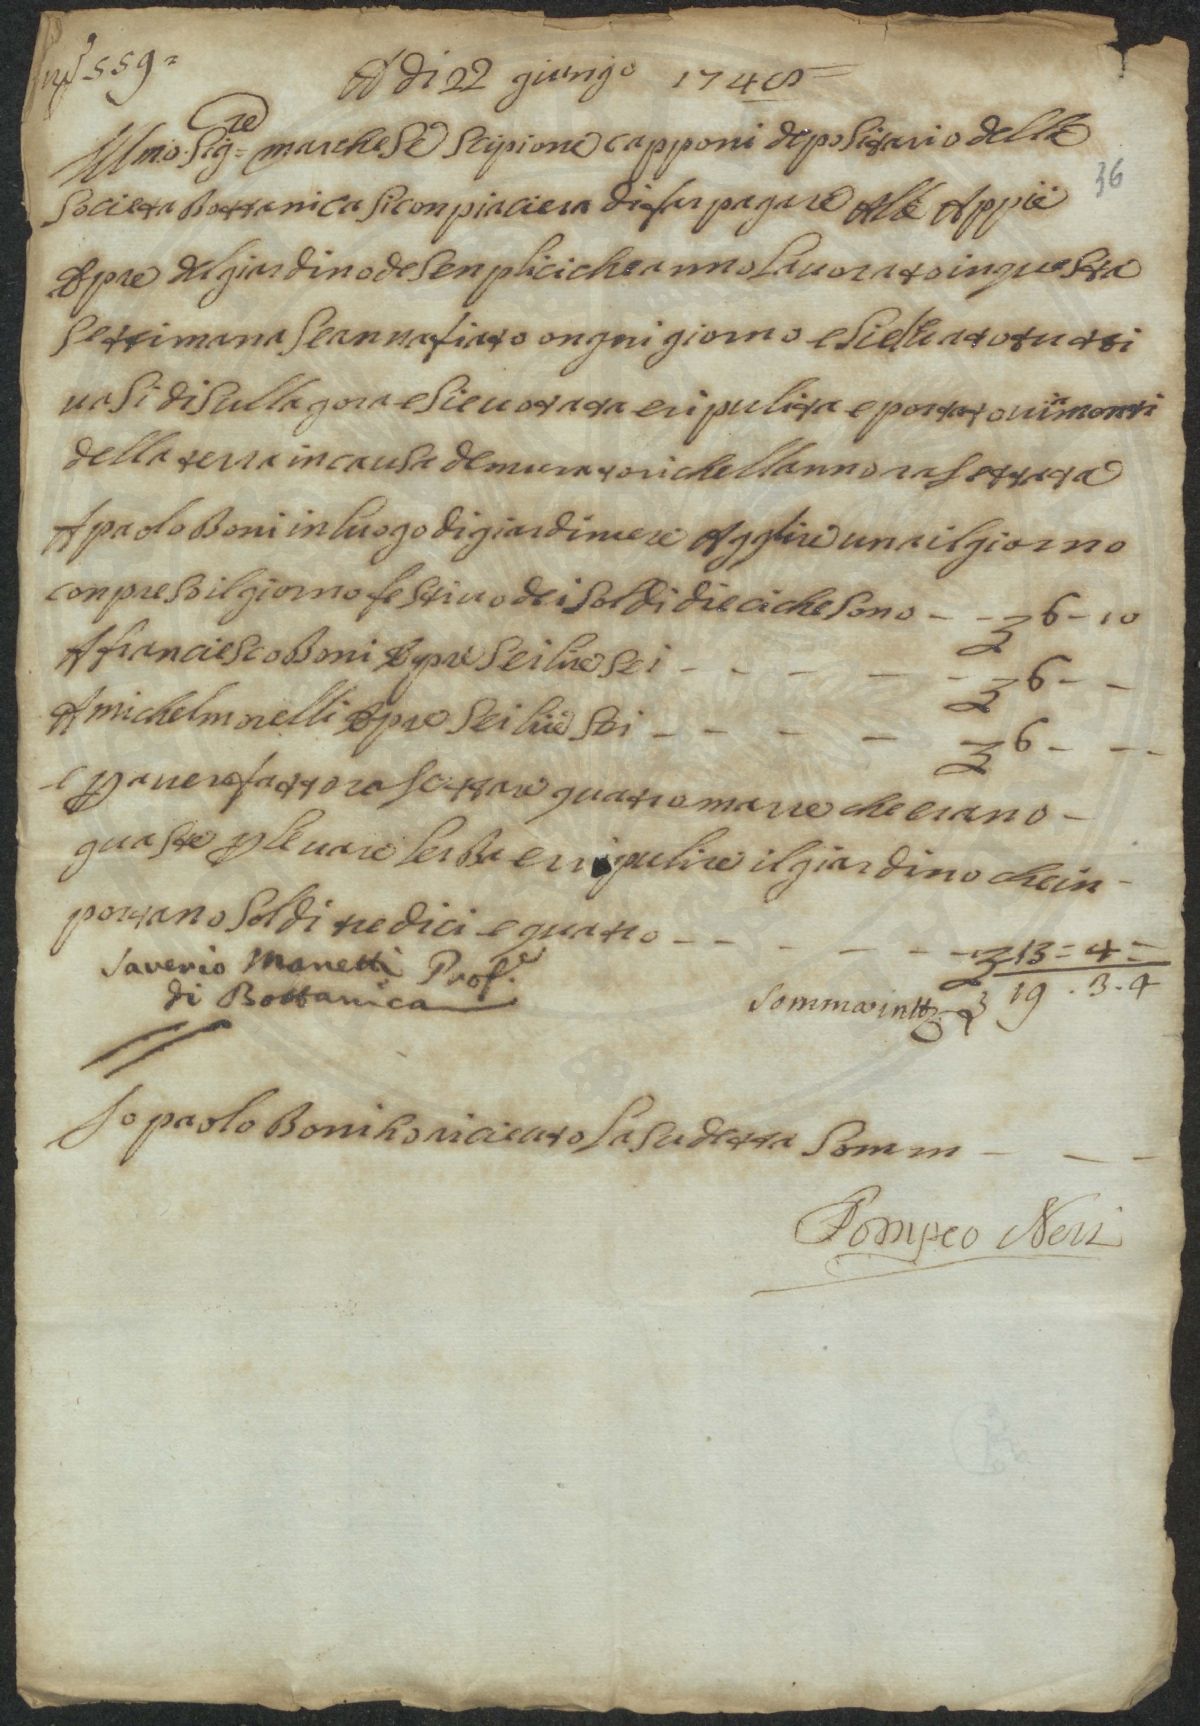 559=
A di 22 giungo 1748=
Illmo. Sig=re marchese Scipione capponi depositario della
Societa Bottanica si conpiaciera di far pagare Alle Appiè
Opre del giardino de senplici che anno lavorato in questa
settimana se annafiato ongni giorno e si e levato tutti
vasi di sulla gora e si e votata e ripulita e portato via monti
della terra in causa de muratori che ll anno rasettata
A paolo Boni in luogo di giardinere Agglire una il giorno
conpreso il giorno festivo dei soldi dieci che sono - - £ 6 - 10
A franciesco Boni Opre sei lire sei - - - - - £ 6 - -
A michel morelli Opre sei lire sei - - - - - £ 6 - - -
e p avere fatto rasettare quatro marre che erano -
guaste p levare lerba e ripulire il giardino che in-
portano soldi tredici e quatro - - - - - - £ 13 = 4 =
Saverio Manetti Prof.e
di Bottanica
Somma in tt £ 19 . 3 . 4
Io paolo Boni ho riceuto la sudetta somm - - -
Pompeo Neri
36